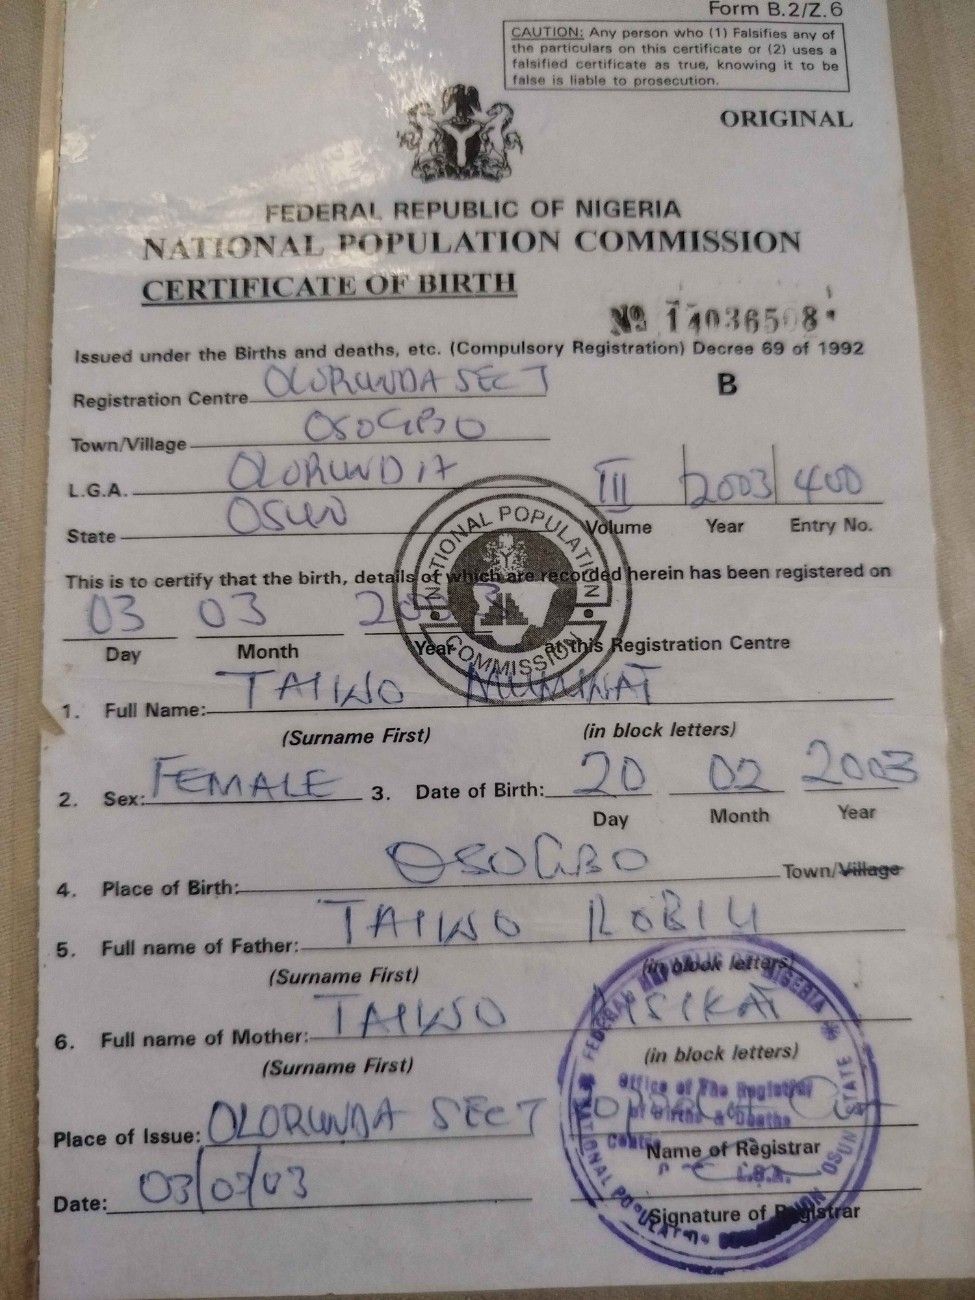 Form B.2/Z.6
CAUTION: Any person who (1) Falsifies any of
the particulars on this certificate or (2) uses a
falsified certificate as true, knowing it to be
false is liable to prosecution.
ORIGINAL
FEDERAL REPUBLIC OF NIGERIA
NATIONAL POPULATION COMMISSION
CERTIFICATE OF BIRTH
Nº 14036508
Issued under the Births and deaths, etc. (Compulsory Registration) Decree 69 of 1992
Registration Centre OLORUNDA SECT
B
Town/Village OSOGBO
L.G.A. OLORUNDA
III 2003 400
State OSUN
Volume Year Entry No.
NATIONAL POPULATION COMMISSION
This is to certify that the birth, details of which are recorded herein has been registered on
03 03 2003
Day Month Year at this Registration Centre
1. Full Name: TAIWO MUMINAT
(Surname First) (in block letters)
2. Sex: FEMALE 3. Date of Birth: 20 02 2003
Day Month Year
4. Place of Birth: OSOGBO Town/Village
5. Full name of Father: TAIWO ROBIU
(Surname First) (in block letters)
6. Full name of Mother: TAIWO RISIKAT
(Surname First) (in block letters)
FEDERAL REPUBLIC OF NIGERIA
Office of The Registrar
of Births & Deaths
Centre
L.G.A.
NATIONAL POPULATION COMMISSION OSUN STATE
Place of Issue: OLORUNDA SECT
Name of Registrar
Date: 03/03/03
Signature of Registrar